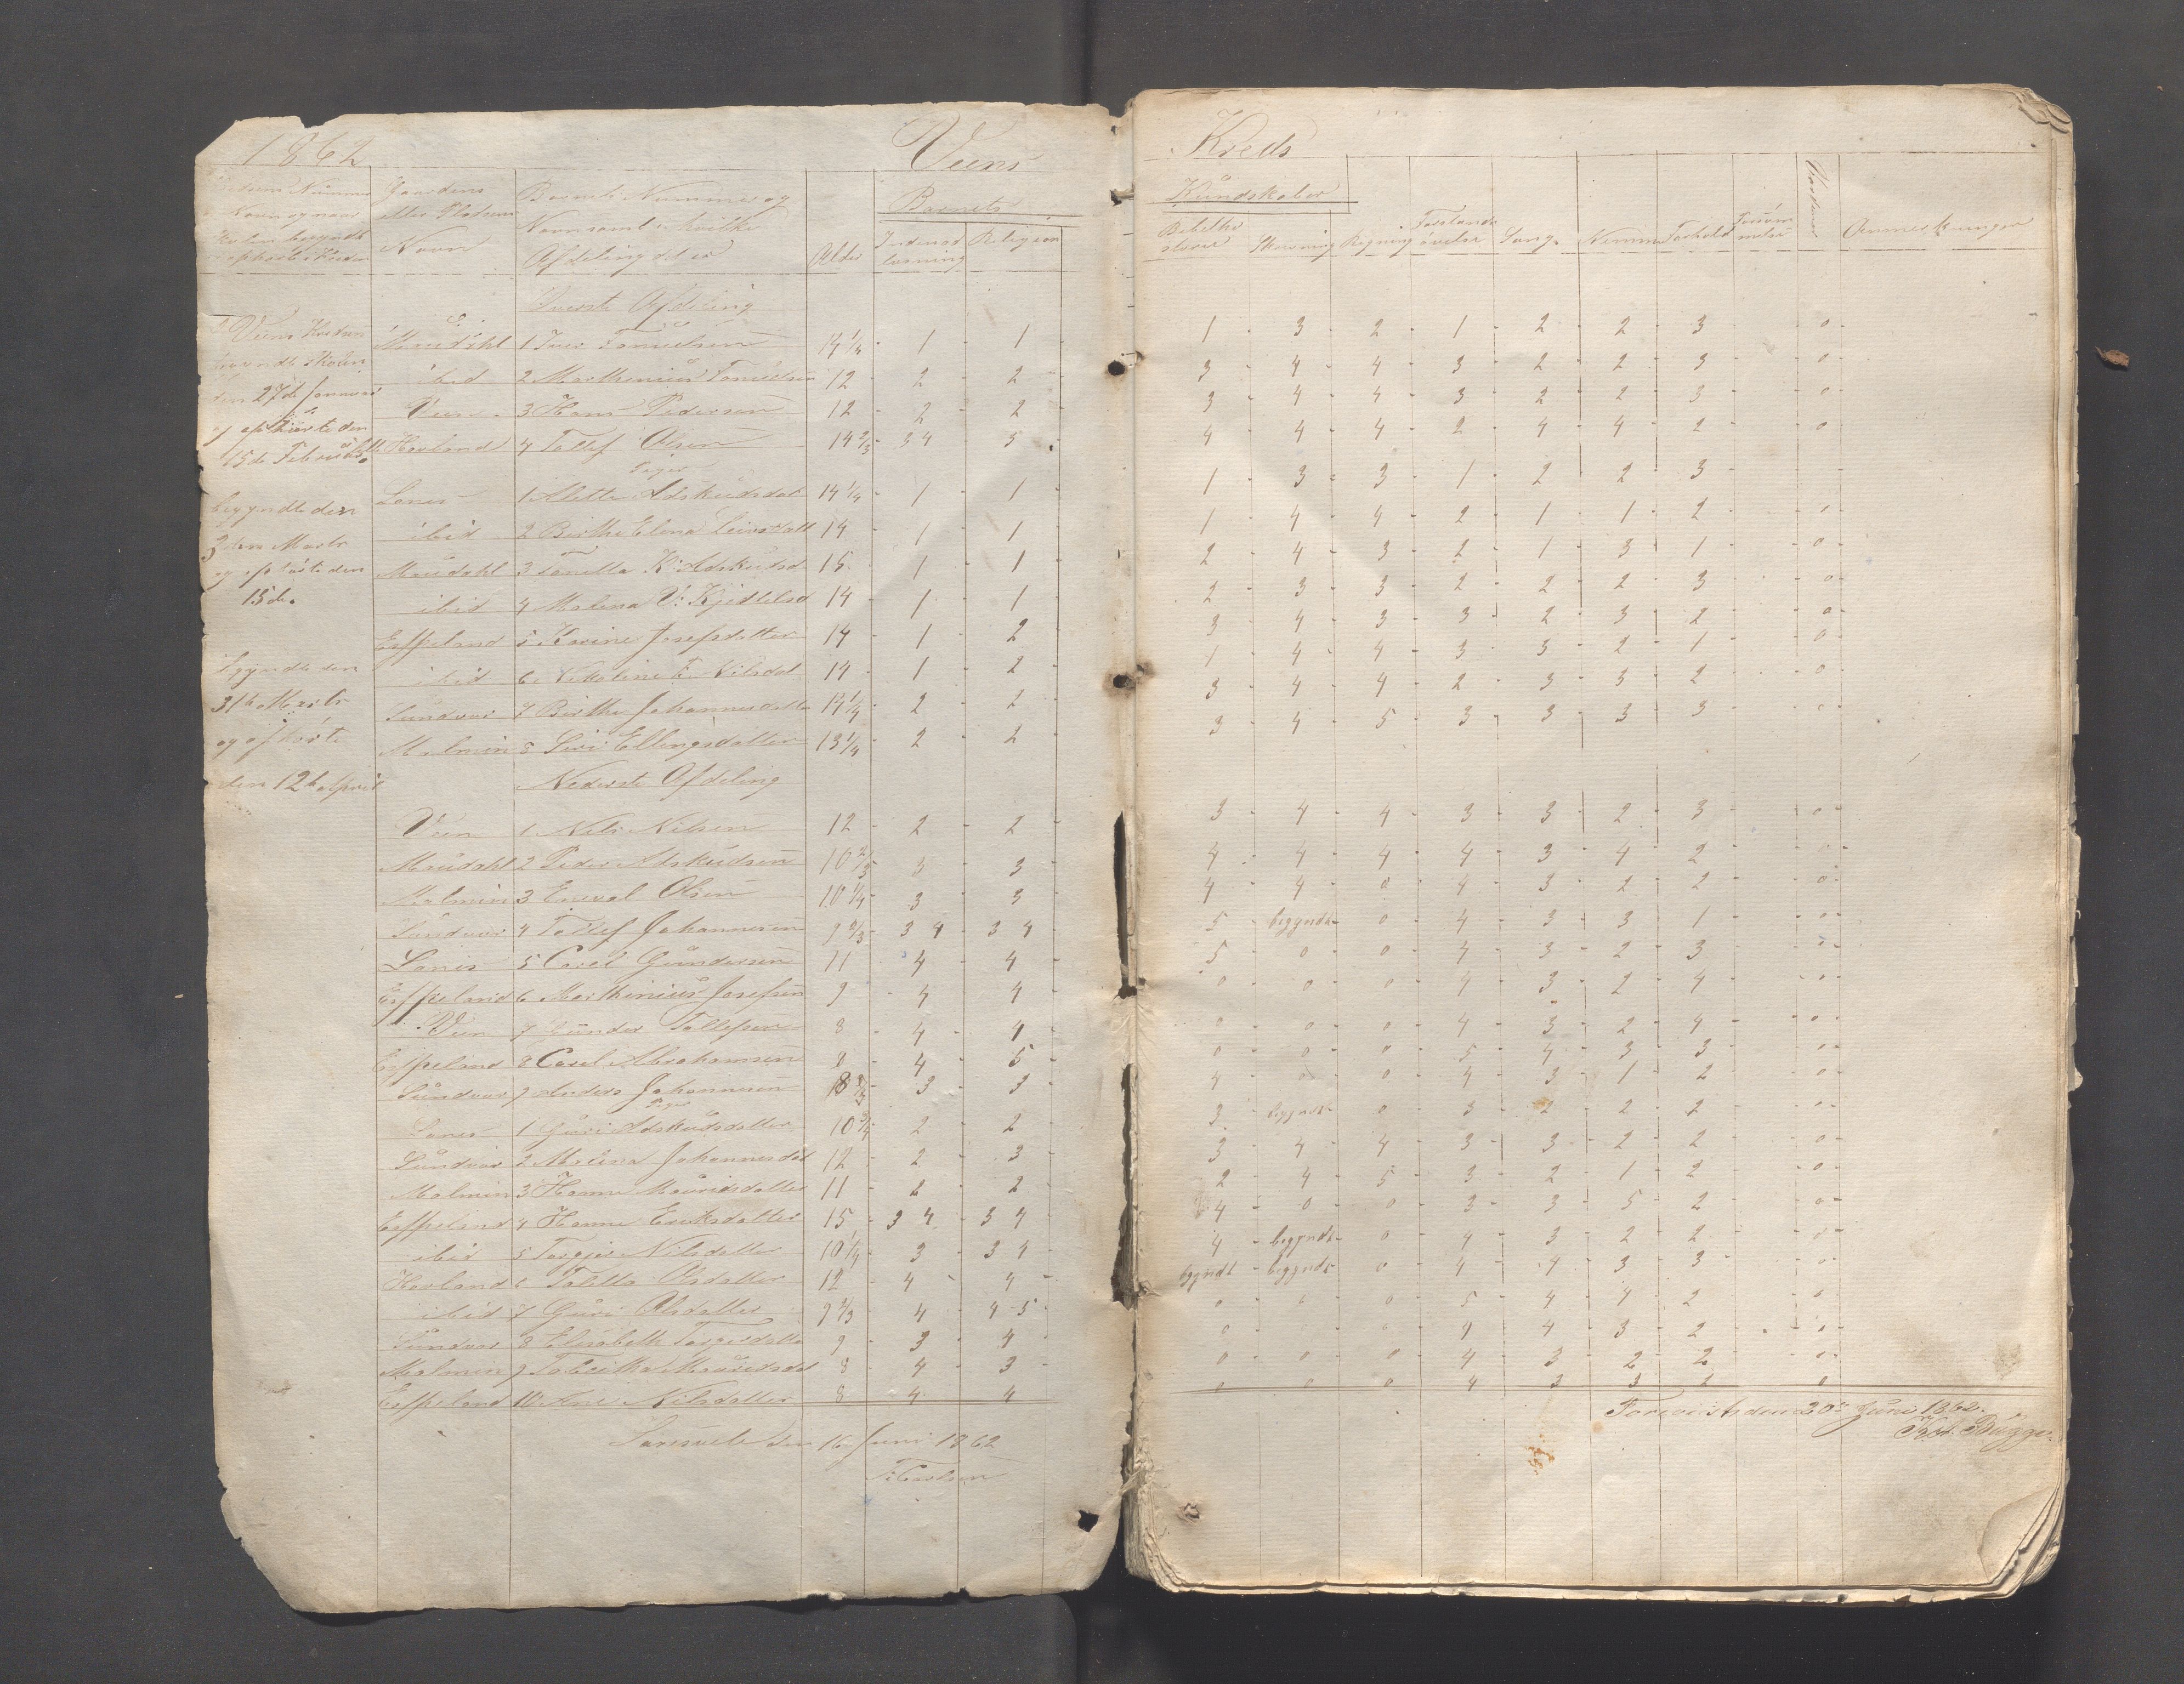 1862
Veens
Kredsens Nummer
Navn og naar
Skolen begyndt
ophørte i Kredsen
Gaardens
eller Pladsens
Navn
Barnets Nummer og
Navn samt i hvilken
Afdeling det er
Alder
Barnets
Indenad
læsning
Religion
Øverste Afdeling
Veens Kreds
begyndte Skolen
den 27de Januar
og ophørte den
15de Februar
begyndte den
3den Marts
og ophørte den
15de.
begyndte den
31te Marts
og ophørte
den 12te April
Maudahl 1 Iver Tønnesen 14 1/4 - 1 - 1
ibid 2 Marthinius 12 - 2 - 2
Veen 3 Hans Pedersen 12 - 2 - 2
Hovland 4 Tollef Olsen 14 2/3 - 3 4 - 5
Piger
Lones 1 Alette Adskudsdat 14 1/4 - 1 - 1
ibid 2 Birthe Elena 14 - 1 - 1
Maudahl 3 Tonetta K. Adskudsd 15 - 1 - 1
ibid 4 Malena V. Kjedtelsd 14 - 1 - 1
Espeland 5 Karine Josefsdatter 14 - 1 - 2
ibid 6 Nikoline T. Nilsdat 14 - 1 - 2
Sundvor 7 Birthe Johannesdatte 14 1/4 - 2 - 2
Malmin 8 Siri Ellingsdatter 13 1/4 - 2 - 2
Nederste Afdeling
Veen 1 Nels Nilsen 12 - 2 - 2
Maudahl 2 Peder Adskudsen 10 2/3 3 - 3
Malmin 3 Eneval Olsen 10 1/4 - 3 - 3
Sundvor 4 Tollef Johannesen 9 2/3 - 3 4 - 3 4
Lones 5 Carel Gundersen 11 - 4 - 4
Espeland 6 Marthinius Josefsen 9 - 4 - 4
Veen 7 Gunder Tollefsen 8 - 4 - 4
Espeland 8 Carel Abrahamsen 9 - 4 - 5
Sundvor 9 Anders Johannesen 8 2/3 - 3 - 3
Piger
Lones 1 Guri Adskudsdatter 10 3/4 - 2 - 2
Sundvor 2 Malena Johannesdat 12 - 2 - 3
Malmin 3 Hanne Mauridsdatter 11 - 2 - 2
Espeland 4 Hanne Eriksdatter 15 - 3 4 - 3 4
ibid 5 Torgjer Nilsdatter 10 1/4 - 3 - 3 4
Hovland 6 Toletta Olsdatter 12 - 4 - 4
ibid 7 Guri Olsdatter 9 2/3 - 4 - 4-5
Sundvor 8 Elisabeth Torgersdatte 9 - 3 - 4
Malmin 9 Tabitha Mauridsdat 8 - 4 - 3
Espeland 10 Ane Nilsdatter 8 - 4 - 4
den 16 Juni 1862
T. Carlsen
Kreds
Kundskaber
Bibelhi
storie
Skrivning
Regning
Forstands
øvelse
Sang
Nemme
Forhold
Forsøm
melse
Anmerkninger
1 - 3 - 2 - 1 - 2 - 2 - 3 - 0
3 - 4 - 4 - 3 - 2 - 2 - 3 - 0
3 - 4 - 4 - 3 - 2 - 2 - 3 - 0
4 - 4 - 4 - 2 - 4 - 4 - 2 - 0
1 - 3 - 3 - 1 - 2 - 2 - 3
1 - 4 - 4 - 2 - 1 - 1 - 2 - 0
2 - 4 - 3 - 2 - 1 - 3 - 1 - 0
2 - 3 - 3 - 2 - 2 - 2 - 3 - 0
3 - 4 - 3 - 3 - 2 - 3 - 2 - 0
1 - 4 - 4 - 3 - 3 - 2 - 1 - 0
3 - 4 - 4 - 2 - 3 - 3 - 2 - 0
3 - 4 - 5 - 3 - 3 - 3 - 3 - 0
3 - 4 - 4 - 3 - 3 - 2 - 3 - 0
4 - 4 - 4 - 4 - 3 - 4 - 2 - 0
4 - 4 - 0 - 4 - 3 - 2 - 2 - 0
5 - begyndt - 0 - 4 - 3 - 3 - 1 - 0
5 - 0 - 0 - 4 - 3 - 2 - 3 - 0
0 - 0 - 0 - 4 - 3 - 2 - 4 - 0
0 - 0 - 0 - 4 - 3 - 2 - 4 - 0
0 - 0 - 0 - 5 - 4 - 3 - 3 - 0
4 - 0 - 0 - 4 - 3 - 1 - 2 - 0
3 - begyndt - 0 - 3 - 2 - 2 - 2 - 0
3 - 4 - 4 - 3 - 3 - 2 - 2 - 0
2 - 4 - 5 - 3 - 2 - 1 - 2 - 0
4 - 0 - 0 - 3 - 3 - 5 - 2 - 0
4 - begyndt - 0 - 4 - 3 - 2 - 2 - 0
begyndt - begyndt - 0 - 4 - 4 - 3 - 3 - 0
0 - 0 - 0 - 5 - 4 - 4 - 2 - 0
0 - 4 - 4 - 3 - 2 - 0
0 - 0 - 0 - 4 - 3 - 2 - 2 - 0
0 0 0 4 3 3 2 0
Forevist den 30te Juni 1862.
Bugge